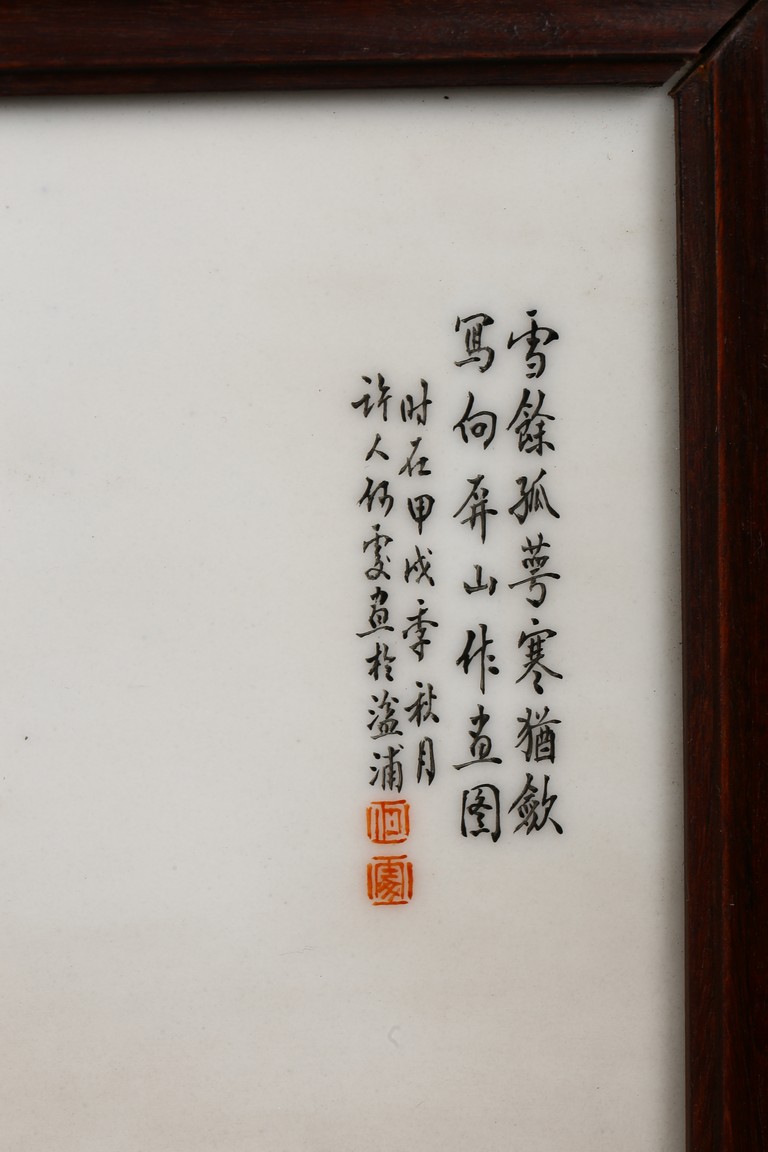 雪餘孤萼寒猶斂
寫向屏山作畫图
时在甲戌季秋月
許人何雯畫於湓浦